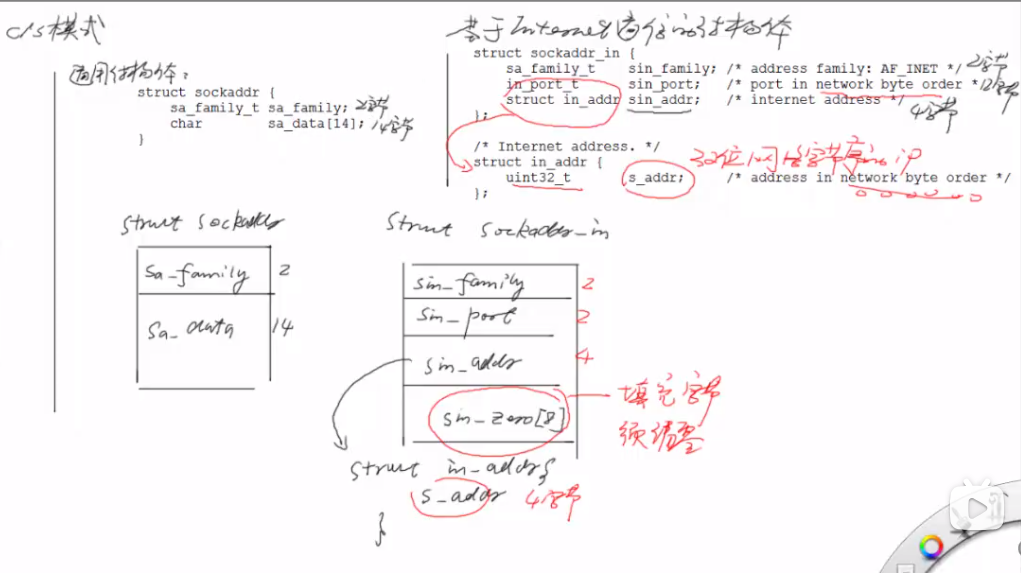 c/s模式
通用结构体:
struct sockaddr {
sa_family_t sa_family; 2字节
char sa_data[14]; 14字节
}
基于Internet通信的结构体
struct sockaddr_in {
sa_family_t sin_family; /* address family: AF_INET */ 2字节
in_port_t sin_port; /* port in network byte order */ 2字节
struct in_addr sin_addr; /* internet address */ 4字节
};
/* Internet address. */
struct in_addr { 32位网络字节序的ip
uint32_t s_addr; /* address in network byte order */
};
struct sockaddr
sa_family 2
sa_data 14
struct sockaddr_in
sin_family 2
sin_port 2
sin_addr 4
sin_zero[8] 填充字节
须清零
struct in_addr{
s_addr 4字节
}